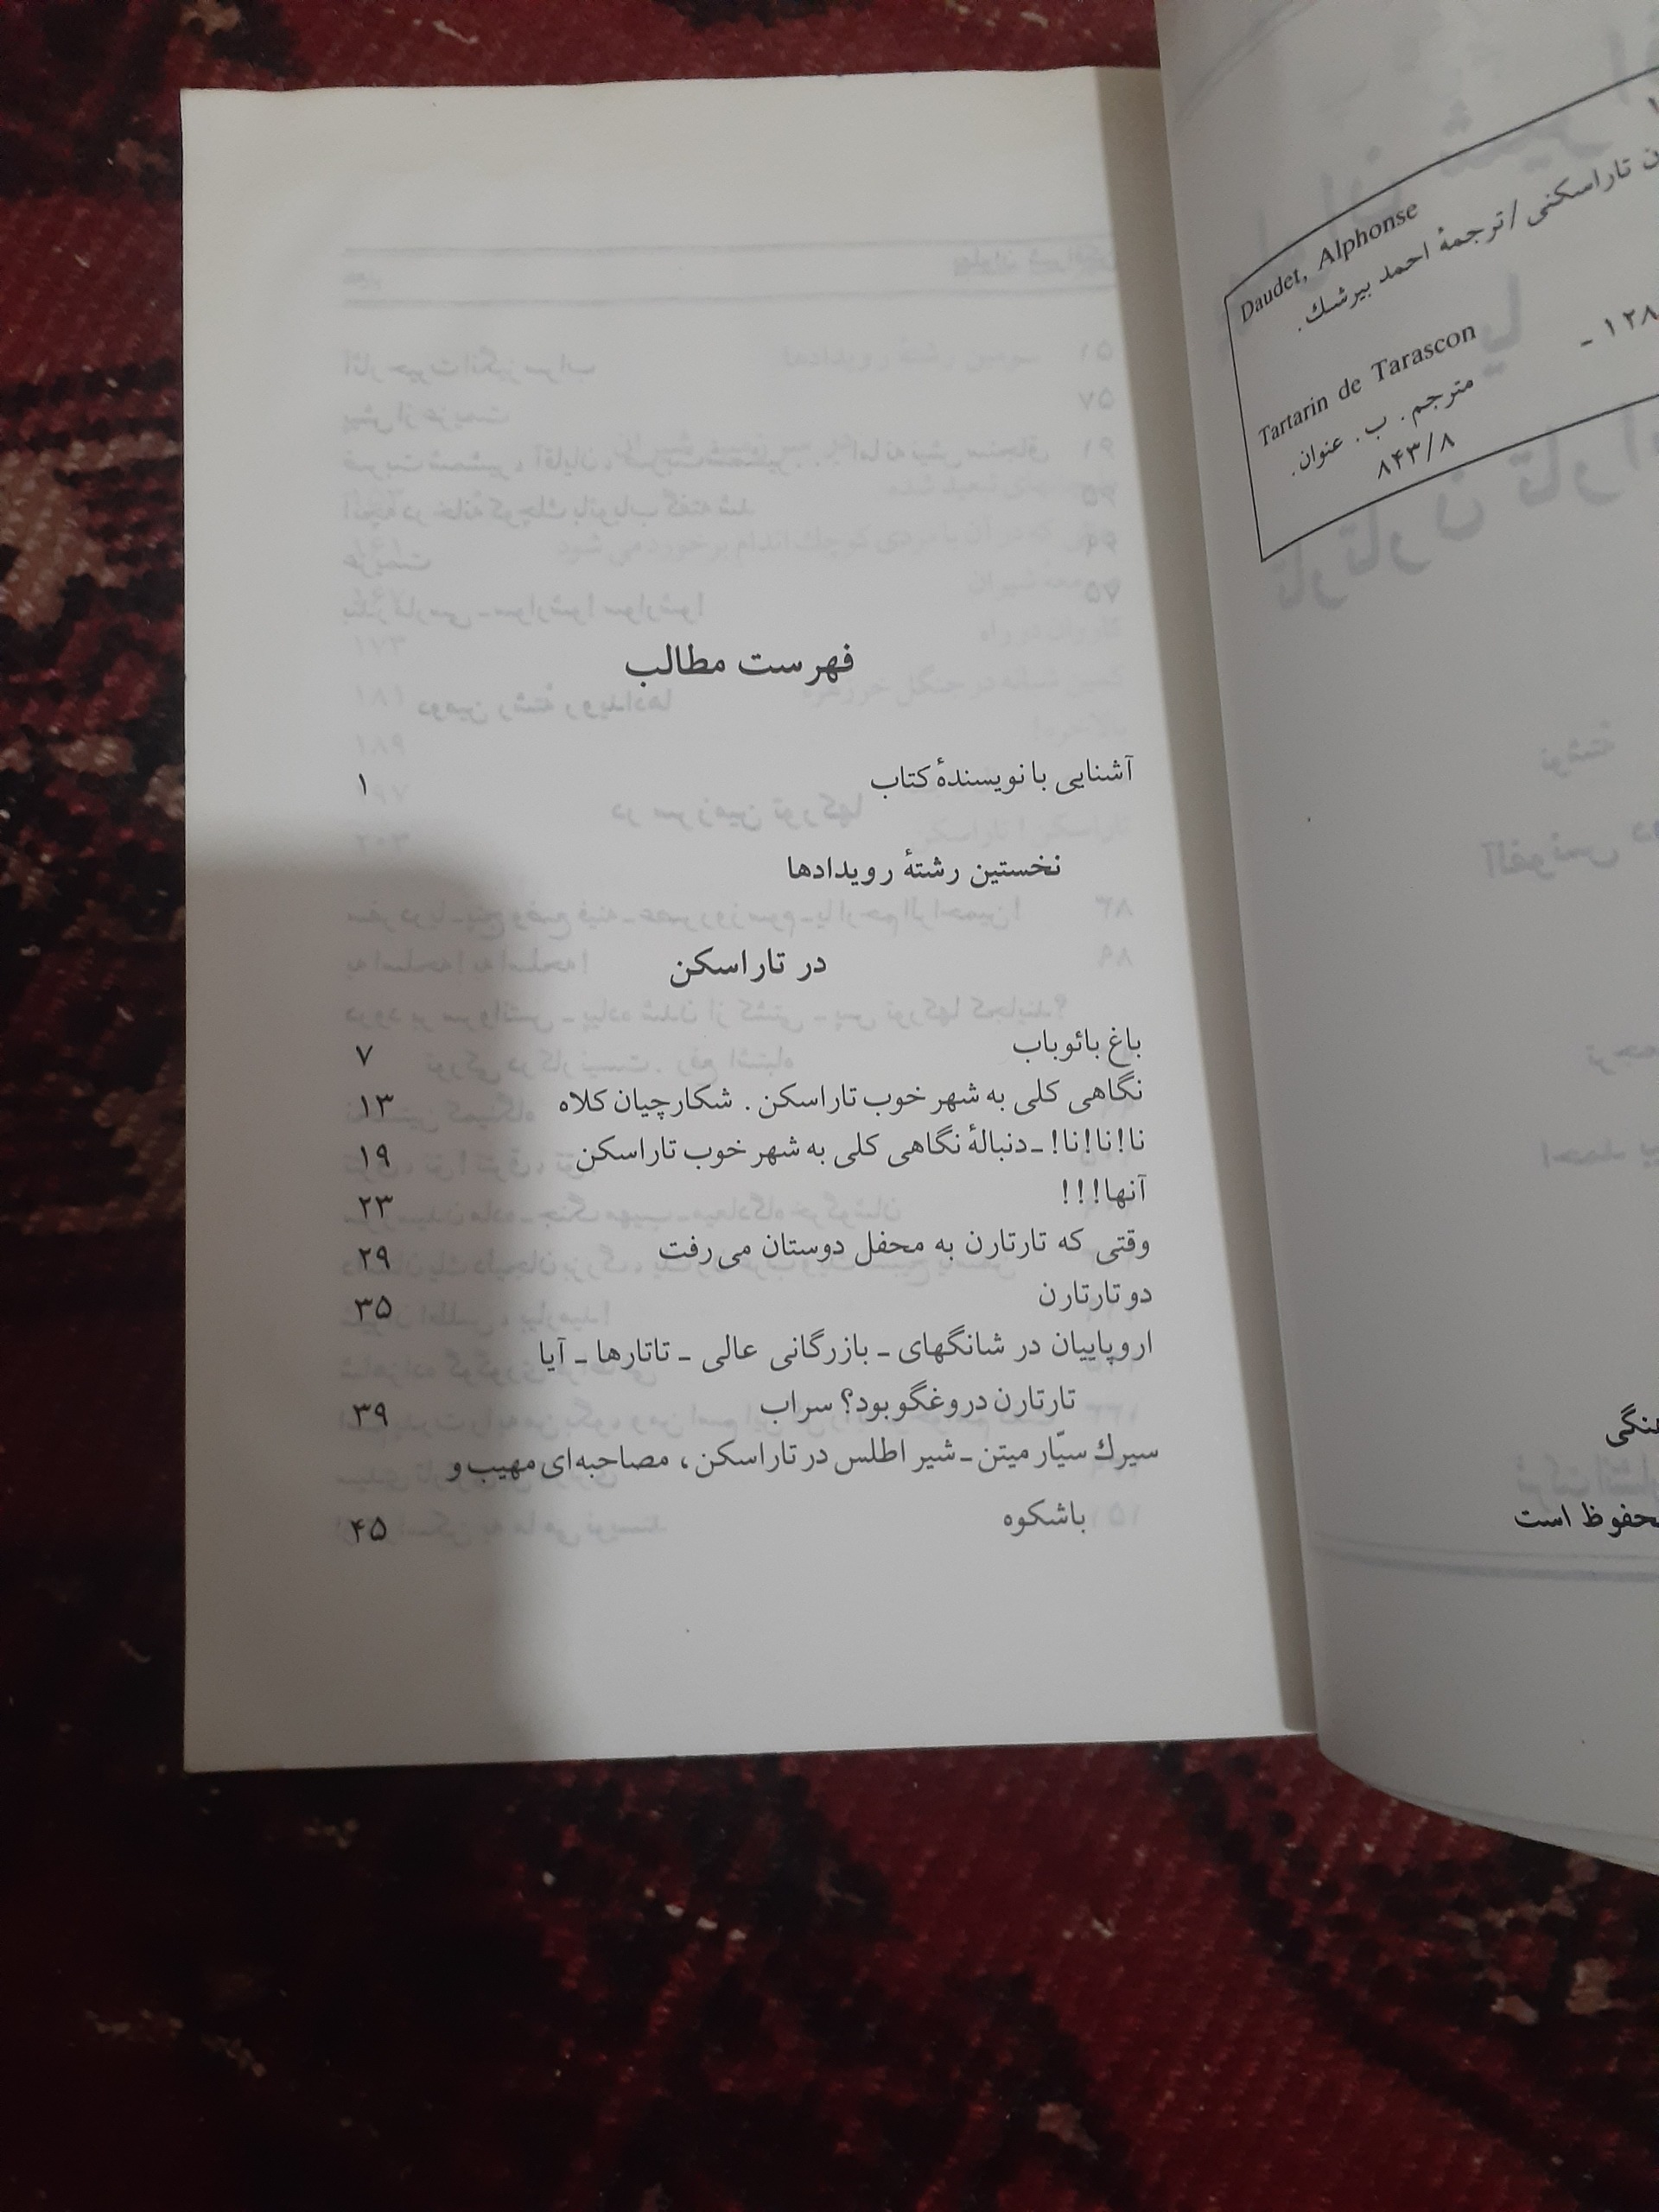 Daudet, Alphonse
تاراسکنی / ترجمهٔ احمد بیرشك.
Tartarin de Tarascon
مترجم. ب. عنوان.
۸۴۳/۸
محفوظ است
فهرست مطالب
آشنایی با نویسندهٔ کتاب ۱
نخستین رشتهٔ رویدادها
در تاراسکن
باغ بائوباب ۷
نگاهی کلی به شهر خوب تاراسکن. شکارچیان کلاه ۱۳
نا!نا!نا! ـ دنبالهٔ نگاهی کلی به شهر خوب تاراسکن ۱۹
آنها!!! ۲۳
وقتی که تارتارن به محفل دوستان می‌رفت ۲۹
دو تارتارن ۳۵
اروپاییان در شانگهای ـ بازرگانی عالی ـ تاتارها ـ آیا
تارتارن دروغگو بود؟ سراب ۳۹
سیرك سیّار میتن ـ شیر اطلس در تاراسکن، مصاحبه‌ای مهیب و
باشکوه ۴۵